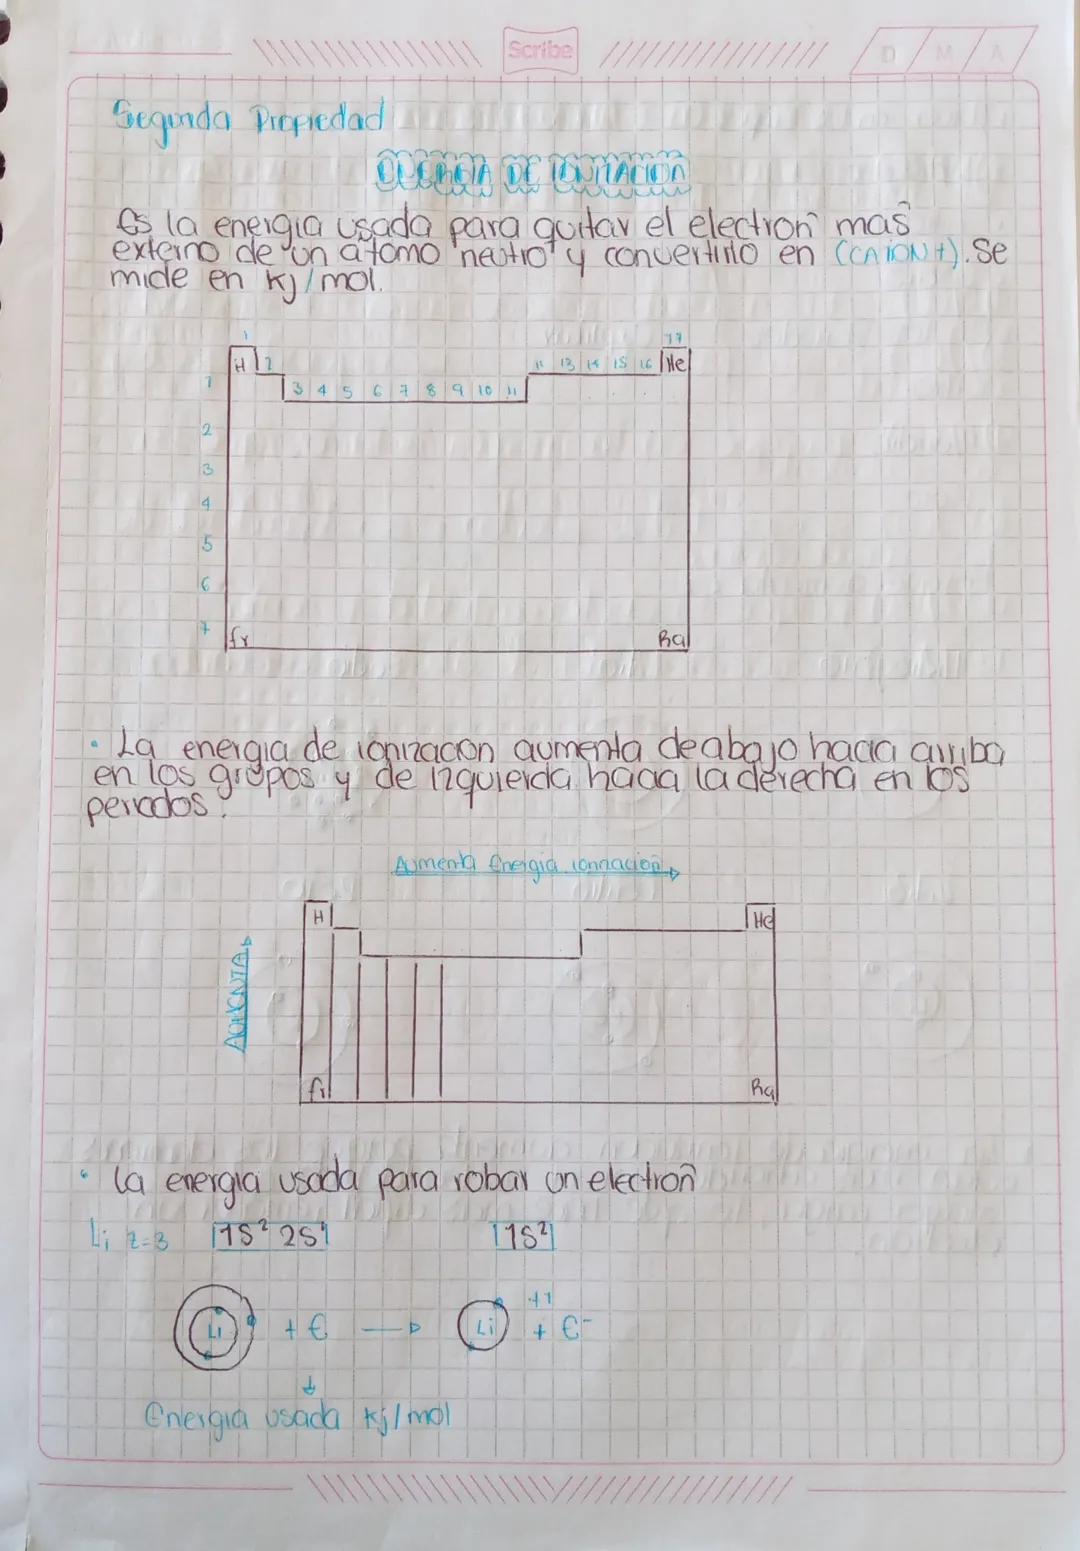 Scribe
D M A
Segunda Propiedad
ENERGIA DE IONIZACION
Es la energia usada para quitar el electron mas
externo de un atomo neutro y convertirlo en (CATION+). Se
mide en Kj/mol.
1 17
H 2 11 13 14 15 16 He
1 3 4 5 6 7 8 9 10 11
2
3
4
5
6
7 fr Ra
• La energia de ionizacion aumenta de abajo hacia arriba
en los grupos y de izquierda hacia la derecha en los
periodos.
Aumenta Energia ionnacion
H He
AUMENTA
fr Ra
• La energia usada para robar un electron
Li z=3 1S² 2S¹ 1S²
Li + E → Li +1 + E-
Energia usada Kj/mol